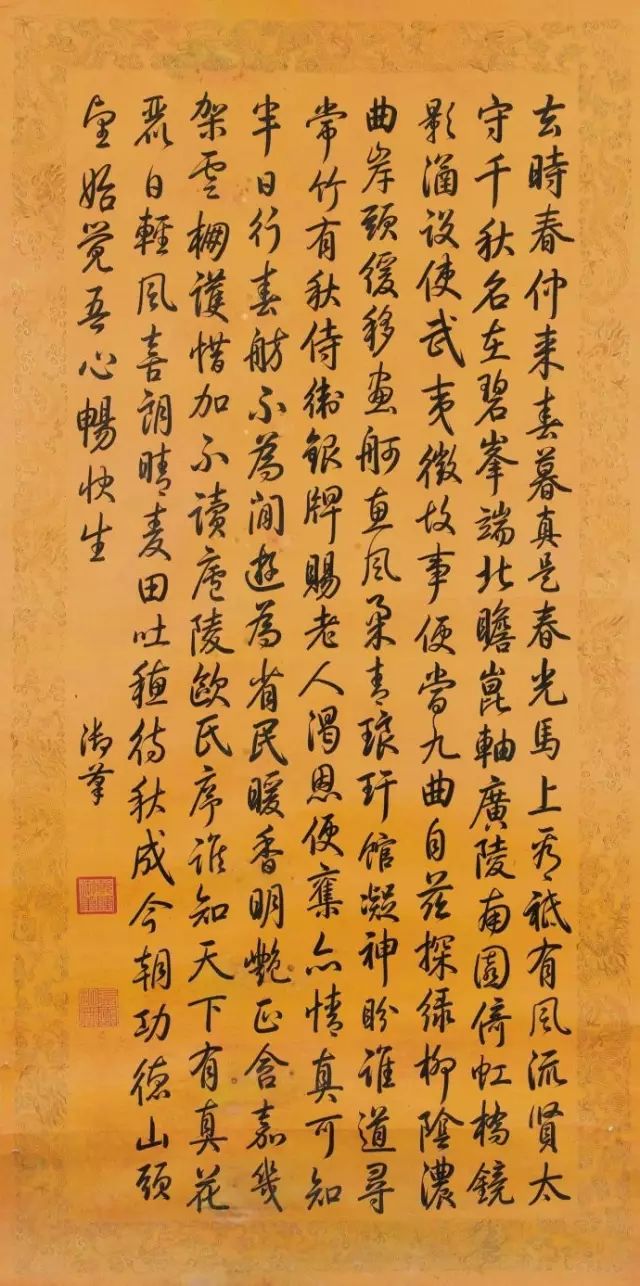 去時春仲来春暮真是春光馬上看祗有風流賢太
守千秋名在碧峯端北瞻崑軸廣陵南園倚虹橋鏡
影涵設使武夷徵故事便當九曲自茲探緑柳陰濃
曲岸頭緩移畫舸惠風柔青琅玕館凝神盼誰道尋
常竹有秋侍衛銀牌賜老人渴恩便奪亦情真可知
半日行春舫不為閒遊為省民暖香明艷正含嘉幾
架雲棚護惜加不讀廬陵歐氏序誰知天下有真花
麗日輕風喜朗晴麦田吐穗待秋成今朝功德山頭
望始覺吾心暢快生
御筆